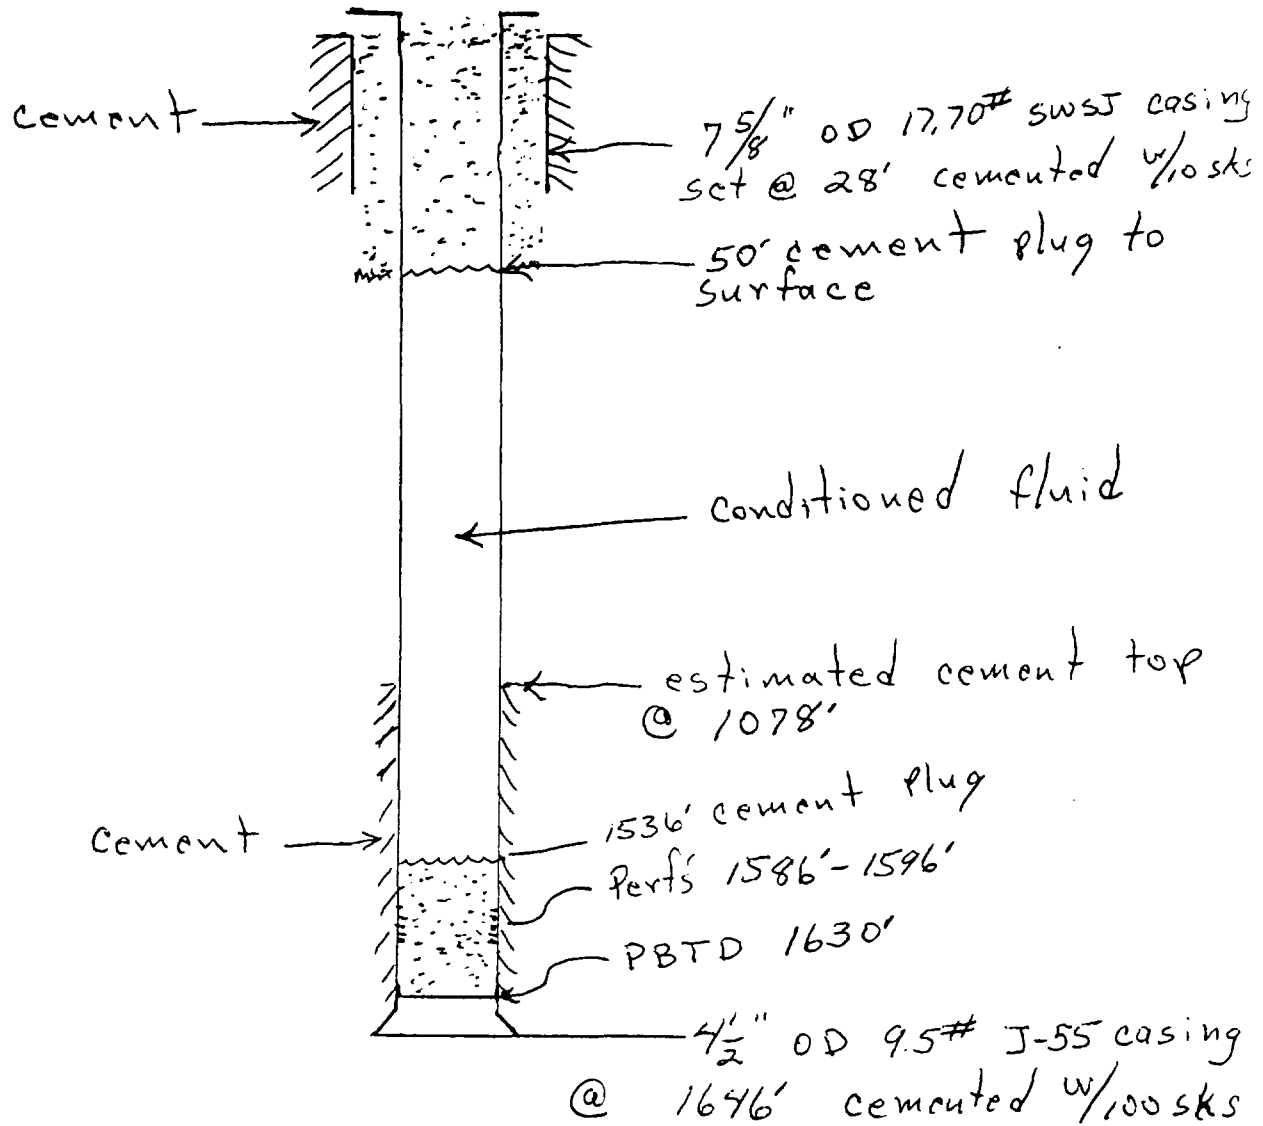 cement
7 5/8" OD 17.70# SWSJ casing
set @ 28' cemented w/10 sks
50' cement plug to
surface
conditioned fluid
estimated cement top
@ 1078'
1536' cement plug
cement
Perfs 1586'-1596'
PBTD 1630'
4 1/2" OD 9.5# J-55 casing
@ 1646' cemented w/100 sks